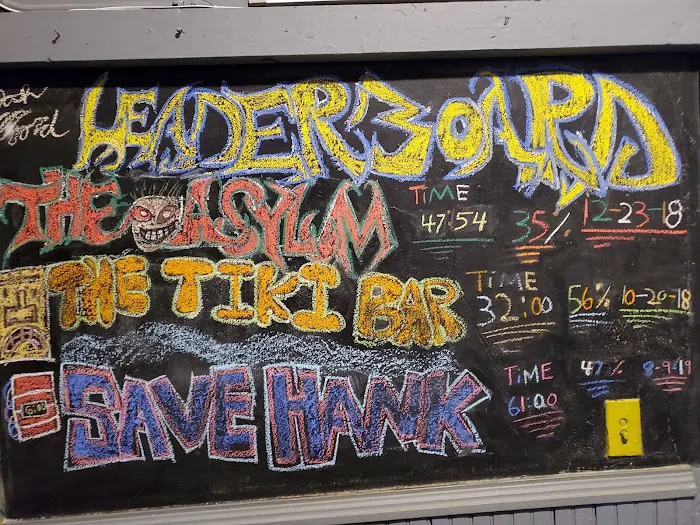 LEADERBOARD
THE ASYLUM TIME: 47:54 35% 12-23-18
THE TIKI BAR TIME 32:00 56% 10-20-18
SAVE HANK TIME 61:00 47% 8-9-19